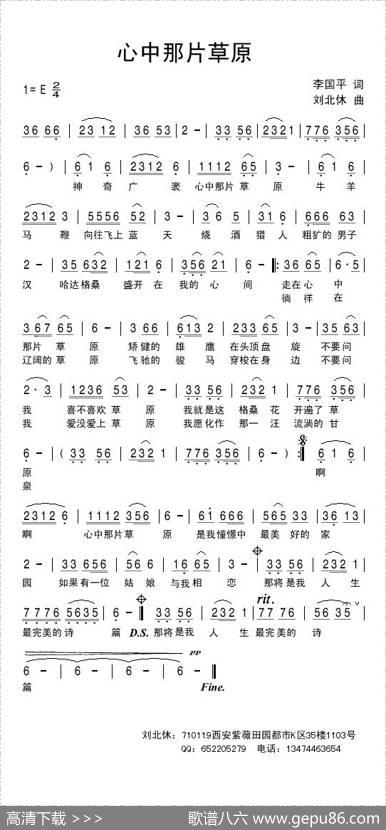 心中那片草原
1= E 2/4
李国平 词
刘北休 曲
36 66 | 23 12 | 36 53 | 2 - | 33 56 | 2321 | 776 356 |
6 - ) | 6 1 6 | 2312 6 | 1112 65 | 3 - | 6 1 6 |
神 奇 广 袤 心中那片 草 原 牛 羊
2312 3 | 5556 52 | 3 - | 3 6 5 | 31 6 | 666 63 |
马 鞭 向往飞上 蓝 天 烧 酒 猎 人 粗犷的 男子
2 - | 35 632 | 121 6 | 356 21 | 6 - ‖: 36 65 | 6·5 |
汉 哈达格桑 盛开 在 我的 心 间 走在心 中
徜徉在
367 65 | 6 - | 3 66 | 613 233 | 2 - | 35 63 |
那片 草 原 矫健的 雄 鹰 在头顶盘 旋 不要问
辽阔的 草 原 飞驰的 骏 马 穿梭在身 边 不要问
2·3 | 1236 53 | 2 - | 33 56 | 232 1 | 776 356 |
我 喜不喜欢 草 原 我就是这 格桑 花 开遍了 草
我 爱没爱上 草 原 我愿化作 那一 汪 流淌的 甘
6 - ( 33 56 | 232 1 | 776 356 | 6 - ) :‖ 6 1 6 |
原 啊
泉
2312 6 | 1112 356 | 6 - | 61 666 | 565 53 | 36 13 |
啊 心中那片 草 原 是我 憧憬中 最美 好的 家
2 - | 33 656 | 56 2 | 1 66 5 | 6 - | 33 56 | 232 1 |
园 如果有一位 姑娘 与我 相 恋 那将是我 人 生
rit.
7776 5635 | 6 - ‖ 33 56 | 232 1 | 77 76 | 56 35 |
最完美的诗 篇 D.S. 那将是我 人 生 最完美的 诗
pp
6 - | 6 - | 6 - | 6 - ‖
篇 Fine.
刘北休：710119西安紫薇田园都市K区35楼1103号
QQ：652205279 电话：13474463654
高清下载 >>> 歌谱八六 www.gepu86.com